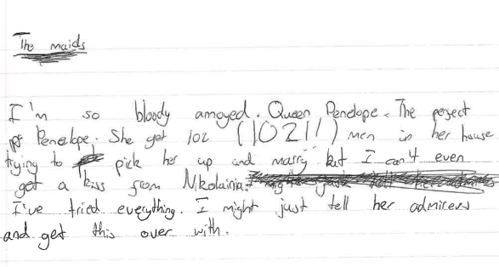 The maids
I'm so bloody annoyed. Queen Penelope. The perfect
Penelope. She got 102 (102!!) men in her house
trying to pick her up and marry but I can't even
get a kiss from
I've tried everything. I might just tell her admirers
and get this over with.